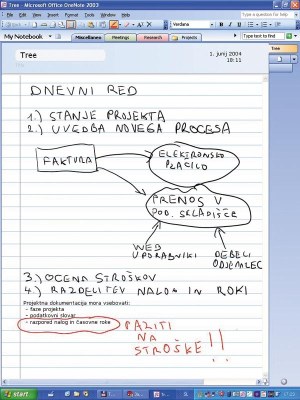 Tree - Microsoft Office OneNote 2003
File Edit View Insert Format Tools Table Window Help
Type a question for help
Verdana
My Notebook
Miscellaneous
Meetings
Research
Projects
Type text to find
Tree
1. junij 2004
Tree
DNEVNI RED
1.) STANJE PROJEKTA
2.) UVEDBA NOVEGA PROCESA
FAKTURA
ELEKTRONSKO
PLAČILO
PRENOS V
POD. SKLADIŠČE
WEB
UPORABNIKI
DEBELI
ODJEMALEC
3.) OCENA STROŠKOV
4.) RAZDELITEV NALOG IN ROKI
Projektna dokumentacija mora vsebovati:
- faze projekta
- podatkovni slovar
- razpored nalog in časovne roke
PAZITI
NA
STROŠKE!!
start